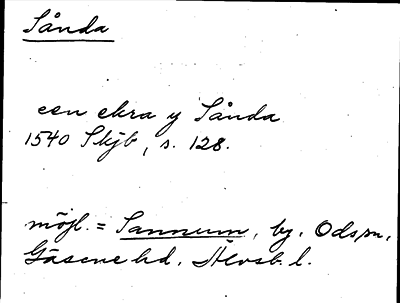 Sånda
een ekra y Sånda
1540 Skjb, s. 128.
möjl. = Sannum, by, Ods sn,
Gäsene hd, Älvsb. l.